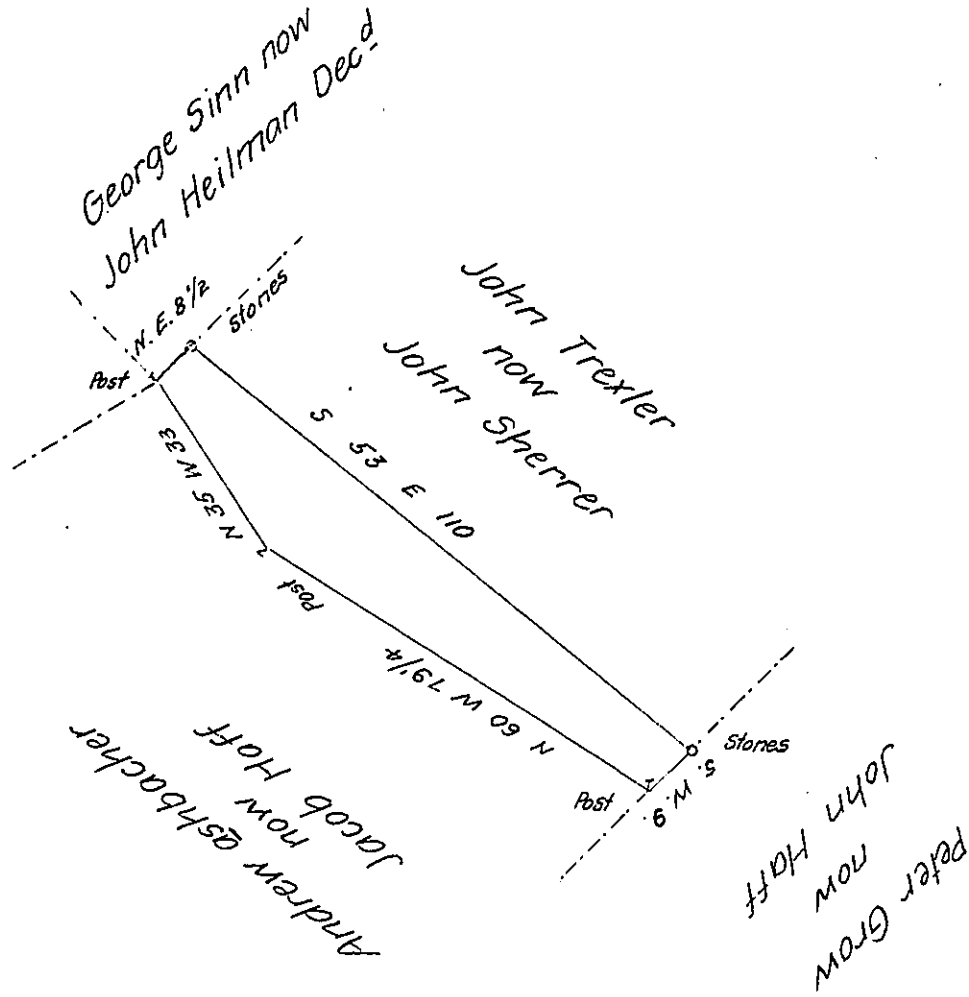 George Sinn now
John Heilman Dec^d
N. E. 8 1/2
Stones
Post
John Trexler
now
John Sherrer
S 53 E 110
N 35 W 33
Post
N 60 W 79 1/4
Stones
S. W. 9.
Post
Andrew ashbacher
now
Jacob Haff
Peter Grow
now
John Haff